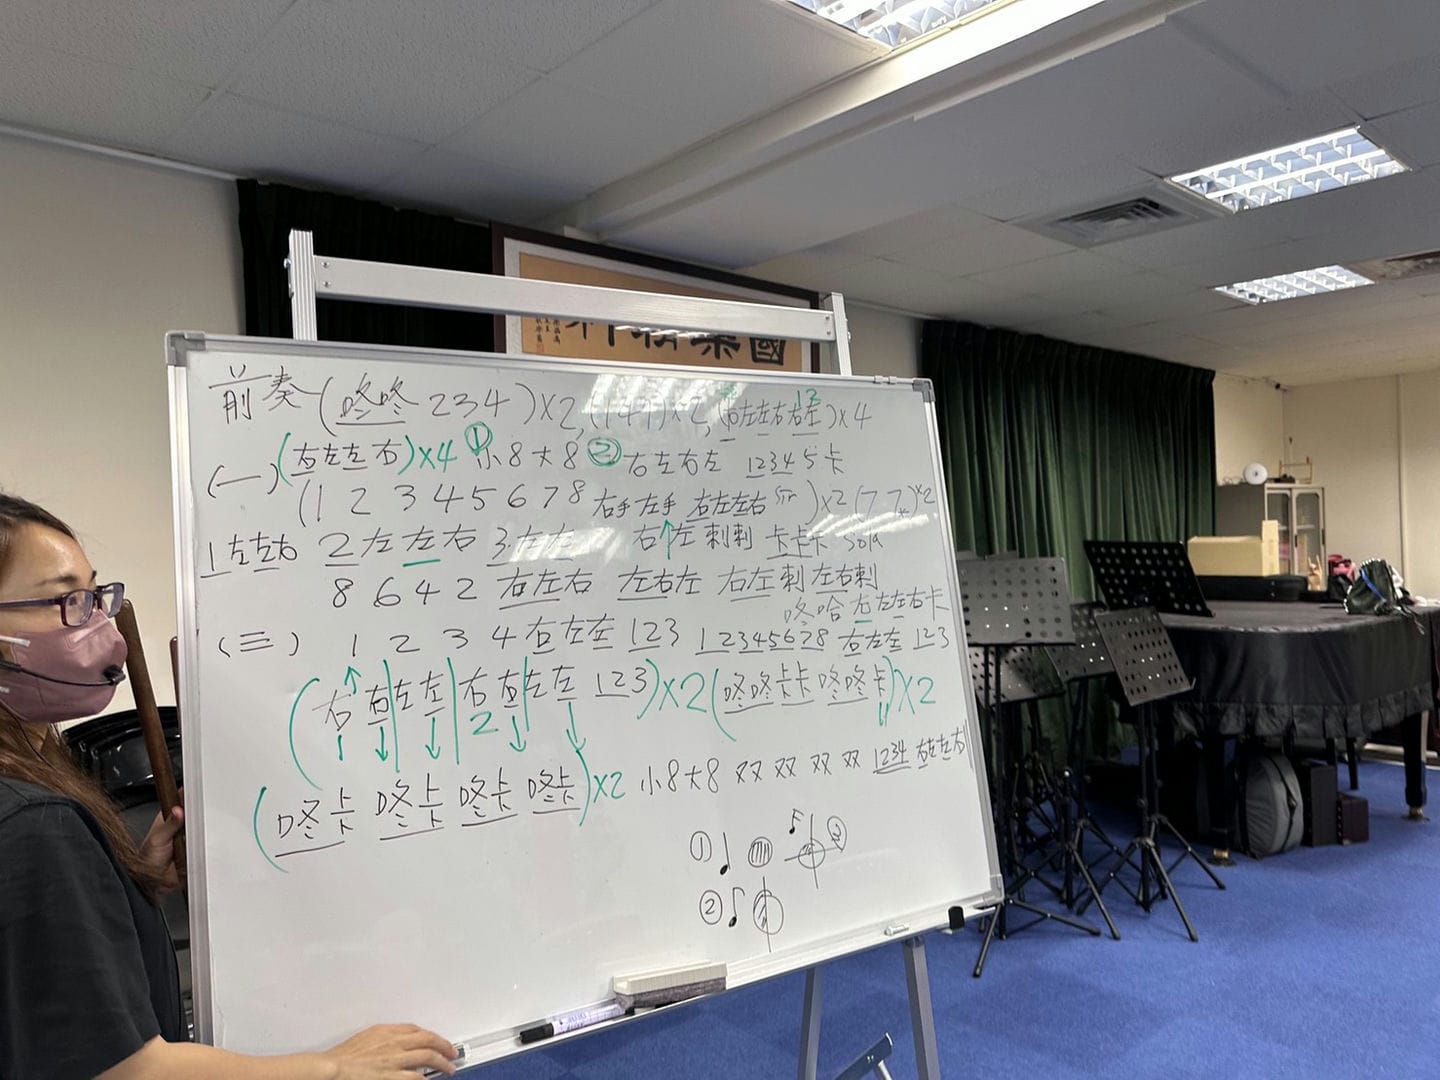 國樂
前奏(咚咚234)×2,(147)×2,(右左左右右左)×4
12
(一)(右左左右)×4 ① 小8大8 ② 右左右左 12345卡
(1 2 3 4 5 6 7 8 右手左手 右左左右 )×2(7 7 )×2
1左左右 2左左右 3左左 右左刺刺 卡卡卡 solo
8 6 4 2 右左右 左右左 右左刺左右刺
咚哈右左左右卡
(三) 1 2 3 4 右左左 123 12345678 右左左 123
(右右左左右右左左123)×2(咚咚卡卡咚咚卡)×2
1 2
(咚卡卡 咚卡 咚卡 咚卡)×2 小8大8 双双双双 1234 右左左右
① ♩ ③
② ♪